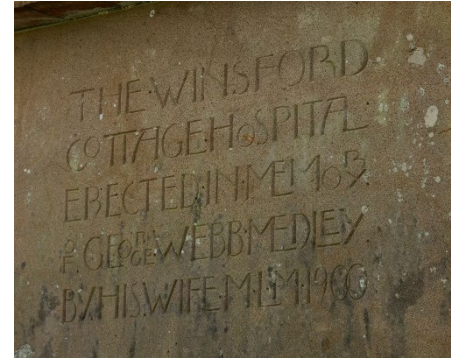 THE·WINSFORD
COTTAGE·HOSPITAL
ERECTED·IN·MEMORY
OF GEORGE·WEBB·MEDLEY
BY·HIS·WIFE·M·L·M·1900